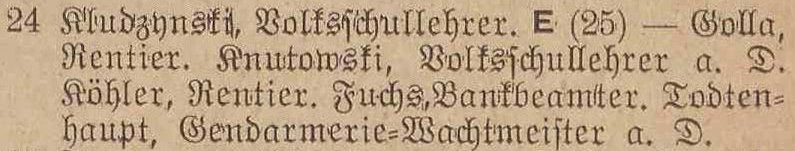 24 Kludzynski, Volksschullehrer. E (25) — Golla,
Rentier. Knutowski, Volksschullehrer a. D.
Köhler, Rentier. Fuchs, Bankbeamter. Todten-
haupt, Gendarmerie-Wachtmeister a. D.